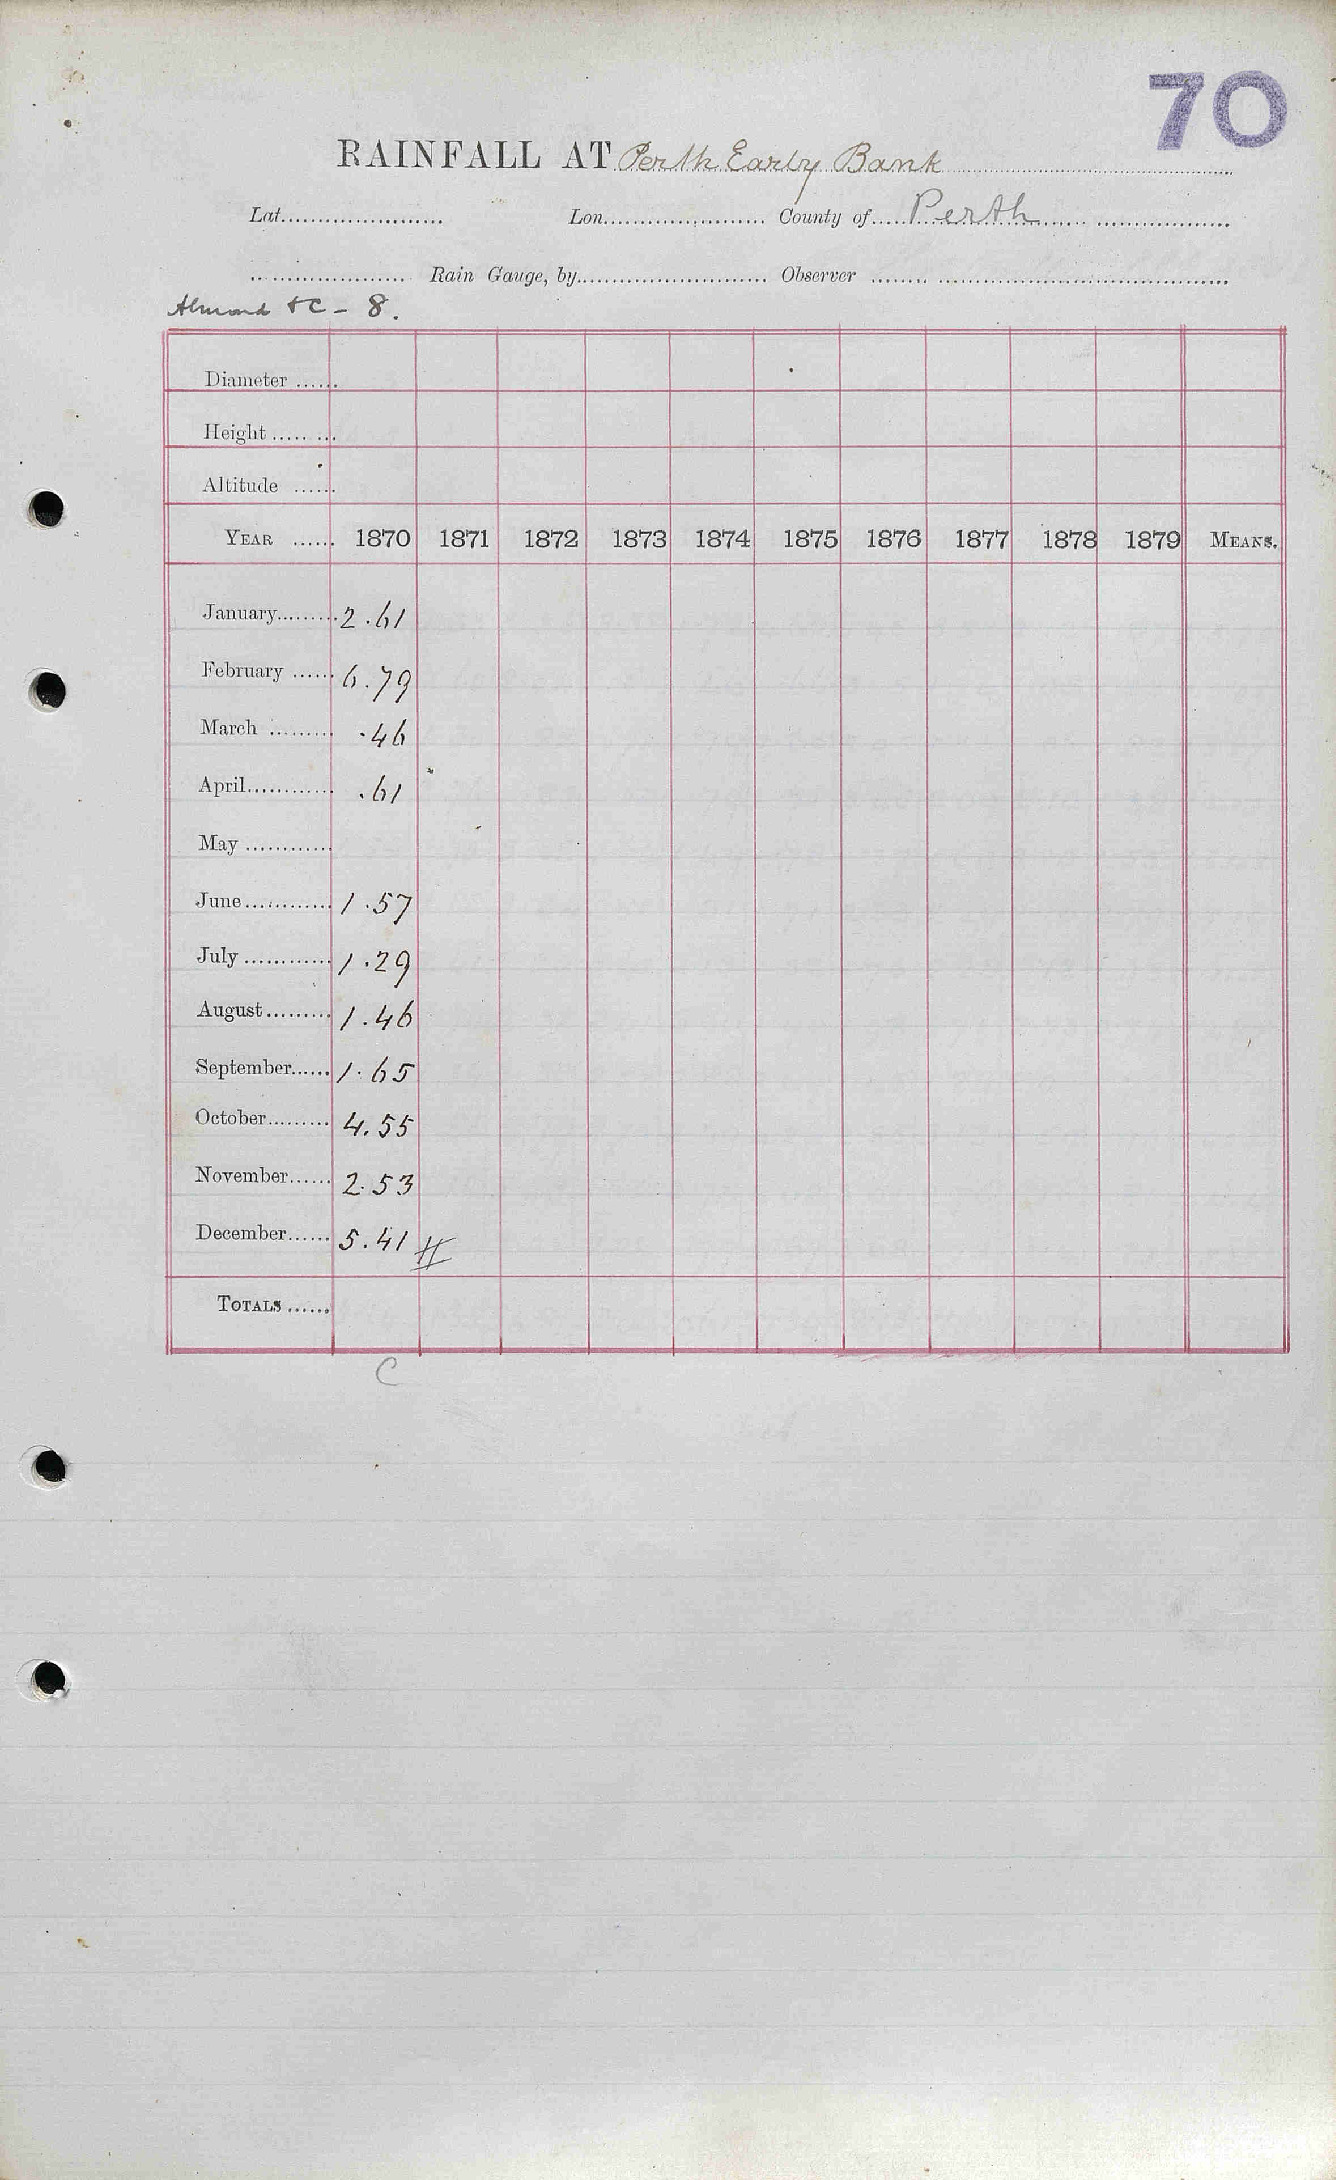 70
RAINFALL AT Perth Early Bank
Lat. Lon. County of Perth
Rain Gauge, by Observer
Almond &c - 8.
Diameter
Height
Altitude
YEAR 1870 1871 1872 1873 1874 1875 1876 1877 1878 1879 MEANS.
January 2.61
February 6.79
March .46
April .61
May
June 1.57
July 1.29
August 1.46
September 1.65
October 4.55
November 2.53
December 5.41 #
TOTALS
C